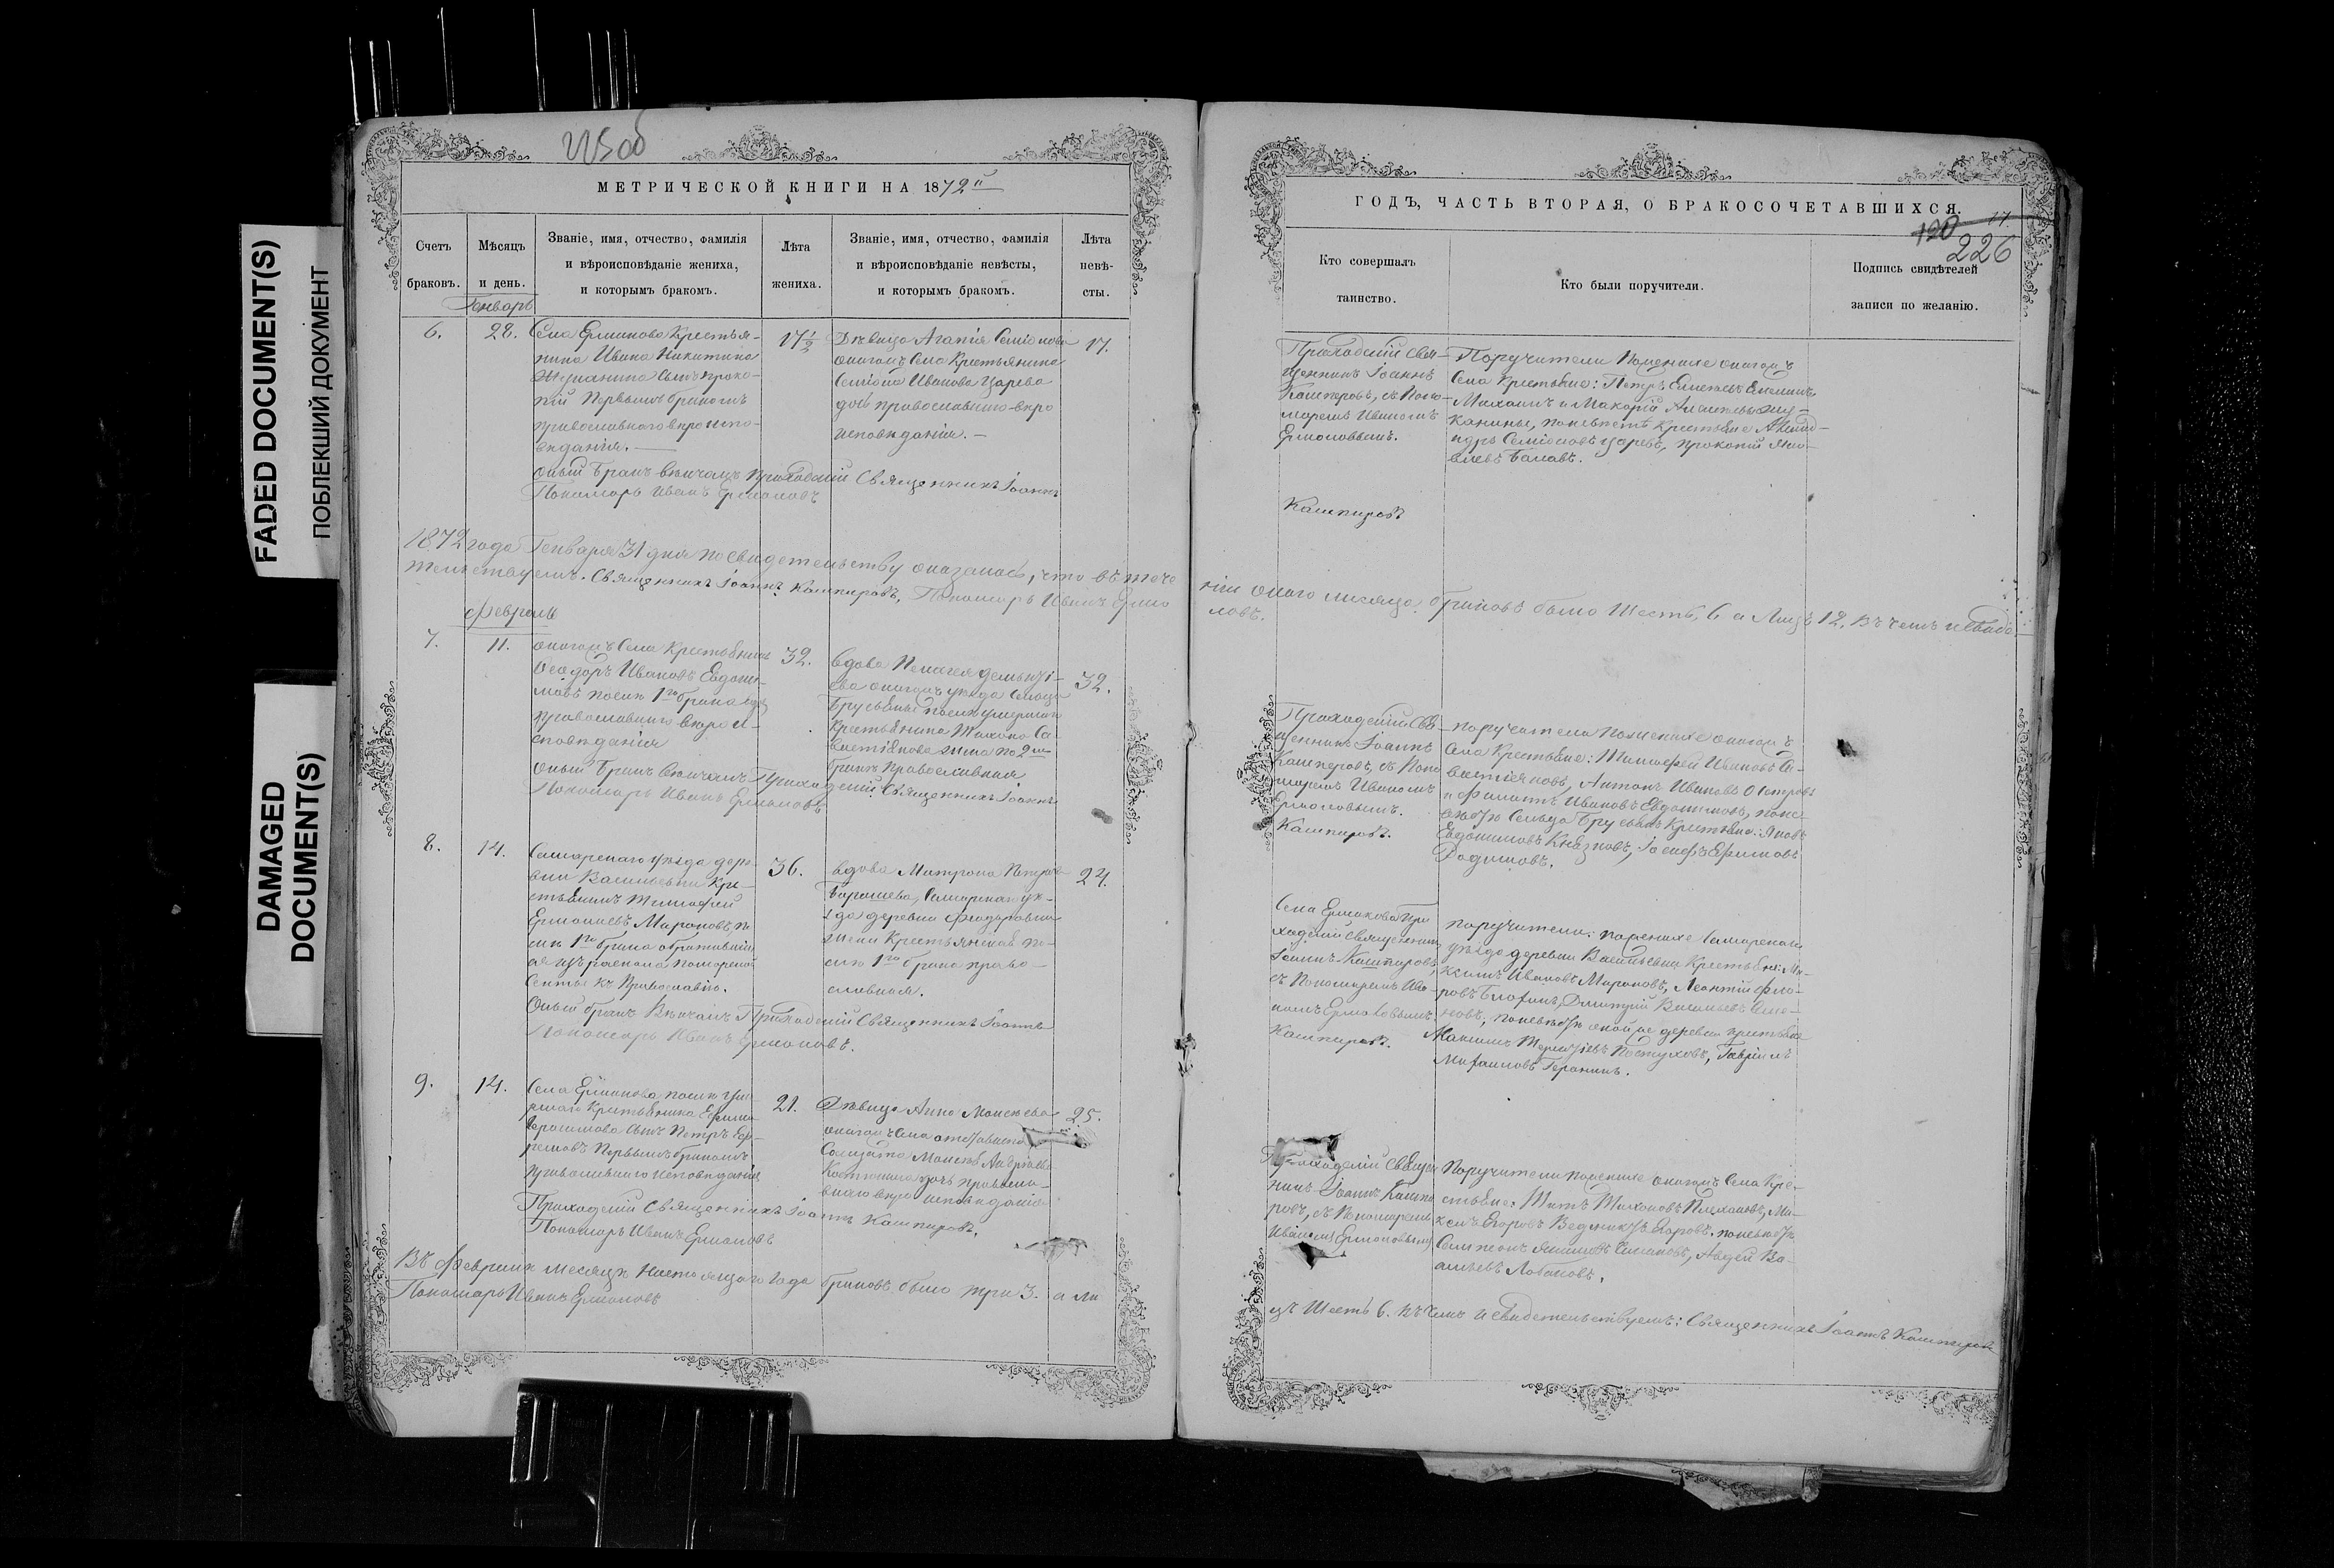 FADED DOCUMENT(S)
ПОБЛЕКШИЙ ДОКУМЕНТ
DAMAGED
DOCUMENT(S)
МЕТРИЧЕСКОЙ КНИГИ НА 1872й
Счетъ
браковъ.
Мѣсяцъ
и день.
Званіе, имя, отчество, фамилія
и вѣроисповѣданіе жениха,
и которымъ бракомъ.
Лѣта
жениха.
Званіе, имя, отчество, фамилія
и вѣроисповѣданіе невѣсты,
и которымъ бракомъ.
Лѣта
невѣ-
сты.
Генварь
6.
28.
Села Ермакова Крестья-
нина Ивана Никитина
сынъ Проко-
пій Первымъ бракомъ
православнаго вѣроиспо-
вѣданія.
17½
Дѣвица Агапія Семіонова
онагожъ Села Крестьянина
Семіона Иванова Царева
дочь православнаго вѣро
исповѣданія. —
17.
Оный бракъ вѣнчалъ Приходскій Священникъ Іоаннъ
Пономарь Иванъ Ермоловъ
1872 года Генваря 31 дня по свидетельству оказалось, что въ тече
тельствуемъ. Священникъ Іоаннъ Кашпировъ, Пономарь Иванъ Ермо
Февраль
7.
11.
онагожъ Села Крестьянинъ
Ѳеодоръ Ивановъ Евдоки-
мовъ послѣ 1го брака
православнаго вѣрои-
сповѣданія
32.
вдова Пелагея
онагожъ уѣзда Сельца
послѣ умершаго
Крестьянина Тихона Са-
вастіянова жена по 2му
браку Православная
32.
Оный бракъ Вѣнчалъ Приходскій Священникъ Іоаннъ
Пономарь Иванъ Ермоловъ
8.
14.
Самарскаго уѣзда дере-
вни Васильевки Кре-
стьянинъ Тимофей
Ермолаевъ Мироновъ, по
слѣ 1го брака обратившій
ся изъ раскола поморской
Секты къ Православію.
36.
вдова Матрона Петрова
Самарскаго уѣ-
зда деревни
жена Крестьянская по-
слѣ 1го брака право-
славная.
24.
Оный бракъ Вѣнчалъ Приходскій Священникъ Іоаннъ
Пономарь Иванъ Ермоловъ.
9.
14.
Села Ермакова послѣ уме-
ршаго Крестьянина Ефима
Герасимова сынъ Петръ Еф-
ремовъ Первымъ бракомъ
православнаго исповѣданія
21.
Дѣвица Анна Моисеева
онагожъ Села отставнаго
Солдата Моисея
дочь правосла-
внаго вѣро исповѣданія
25.
Приходскій Священникъ Іоаннъ Кашпировъ.
Пономарь Иванъ Ермоловъ
Въ Февралѣ месяцѣ настоящаго года браковъ было три 3. а ли
Пономарь Иванъ Ермоловъ
ГОДЪ, ЧАСТЬ ВТОРАЯ, О БРАКОСОЧЕТАВШИХСЯ.
226
Кто совершалъ
таинство.
Кто были поручители.
Подпись свидѣтелей
записи по желанію.
Приходскій Свя-
щенникъ Іоаннъ
Кашперовъ, съ Поно-
маремъ Иваномъ
Ермоловымъ.
Поручители По женихе онагожъ
Села Крестьяне: Петръ
Михаилъ и Макарій
по невѣстѣ Крестьяне
Семіоновъ Царевъ, Прокопій Яко-
влевъ
Кашпировъ
ніи онаго месяца, браковъ было Шесть, 6 а Лицъ 12, въ чемъ и свиде
ловъ.
Приходскій Свя-
щенникъ Іоаннъ
Кашперовъ, съ Поно
маремъ Иваномъ
Ермоловымъ.
Кашпировъ.
поручители По женихе онагожъ
Села Крестьяне: Тимофей Ивановъ Са-
вастіяновъ, Антонъ Ивановъ
и Филиппъ Ивановъ Евдокимовъ, по не-
вѣстѣ Сельца Крестьяне: Яковъ
Евдокимовъ Князковъ, Іосифъ Ефимовъ
Родіоновъ.
Села Ермакова При
ходскій Священникъ
Іоаннъ Кашпировъ,
съ Пономаремъ Ива-
номъ Ермоловымъ.
Кашпировъ.
поручители: по женихе Самарскаго
уѣзда деревни Васильевки Крестьяне: Ма-
ксимъ Ивановъ Мироновъ, Леонтій Фло-
ровъ Дмитрій Васильевъ Семе-
новъ, по невѣстѣ оной же деревни крестьяне
Максимъ Терентіевъ Пастуховъ, Гавріилъ
Михаиловъ
Приходскій Священ
никъ Іоаннъ Кашпи
ровъ, съ Пономаремъ
Иваномъ Ермоловымъ
Поручители по женихе онагожъ Села Кре-
стьяне: Титъ Тихоновъ Плехановъ, Ма-
ксимъ Егоровъ по невѣстѣ
Семіонъ Авдей Ва-
сильевъ Лобановъ.
цъ Шесть 6. въ чемъ и свидетельствуемъ: Священникъ Іоаннъ Кашперовъ